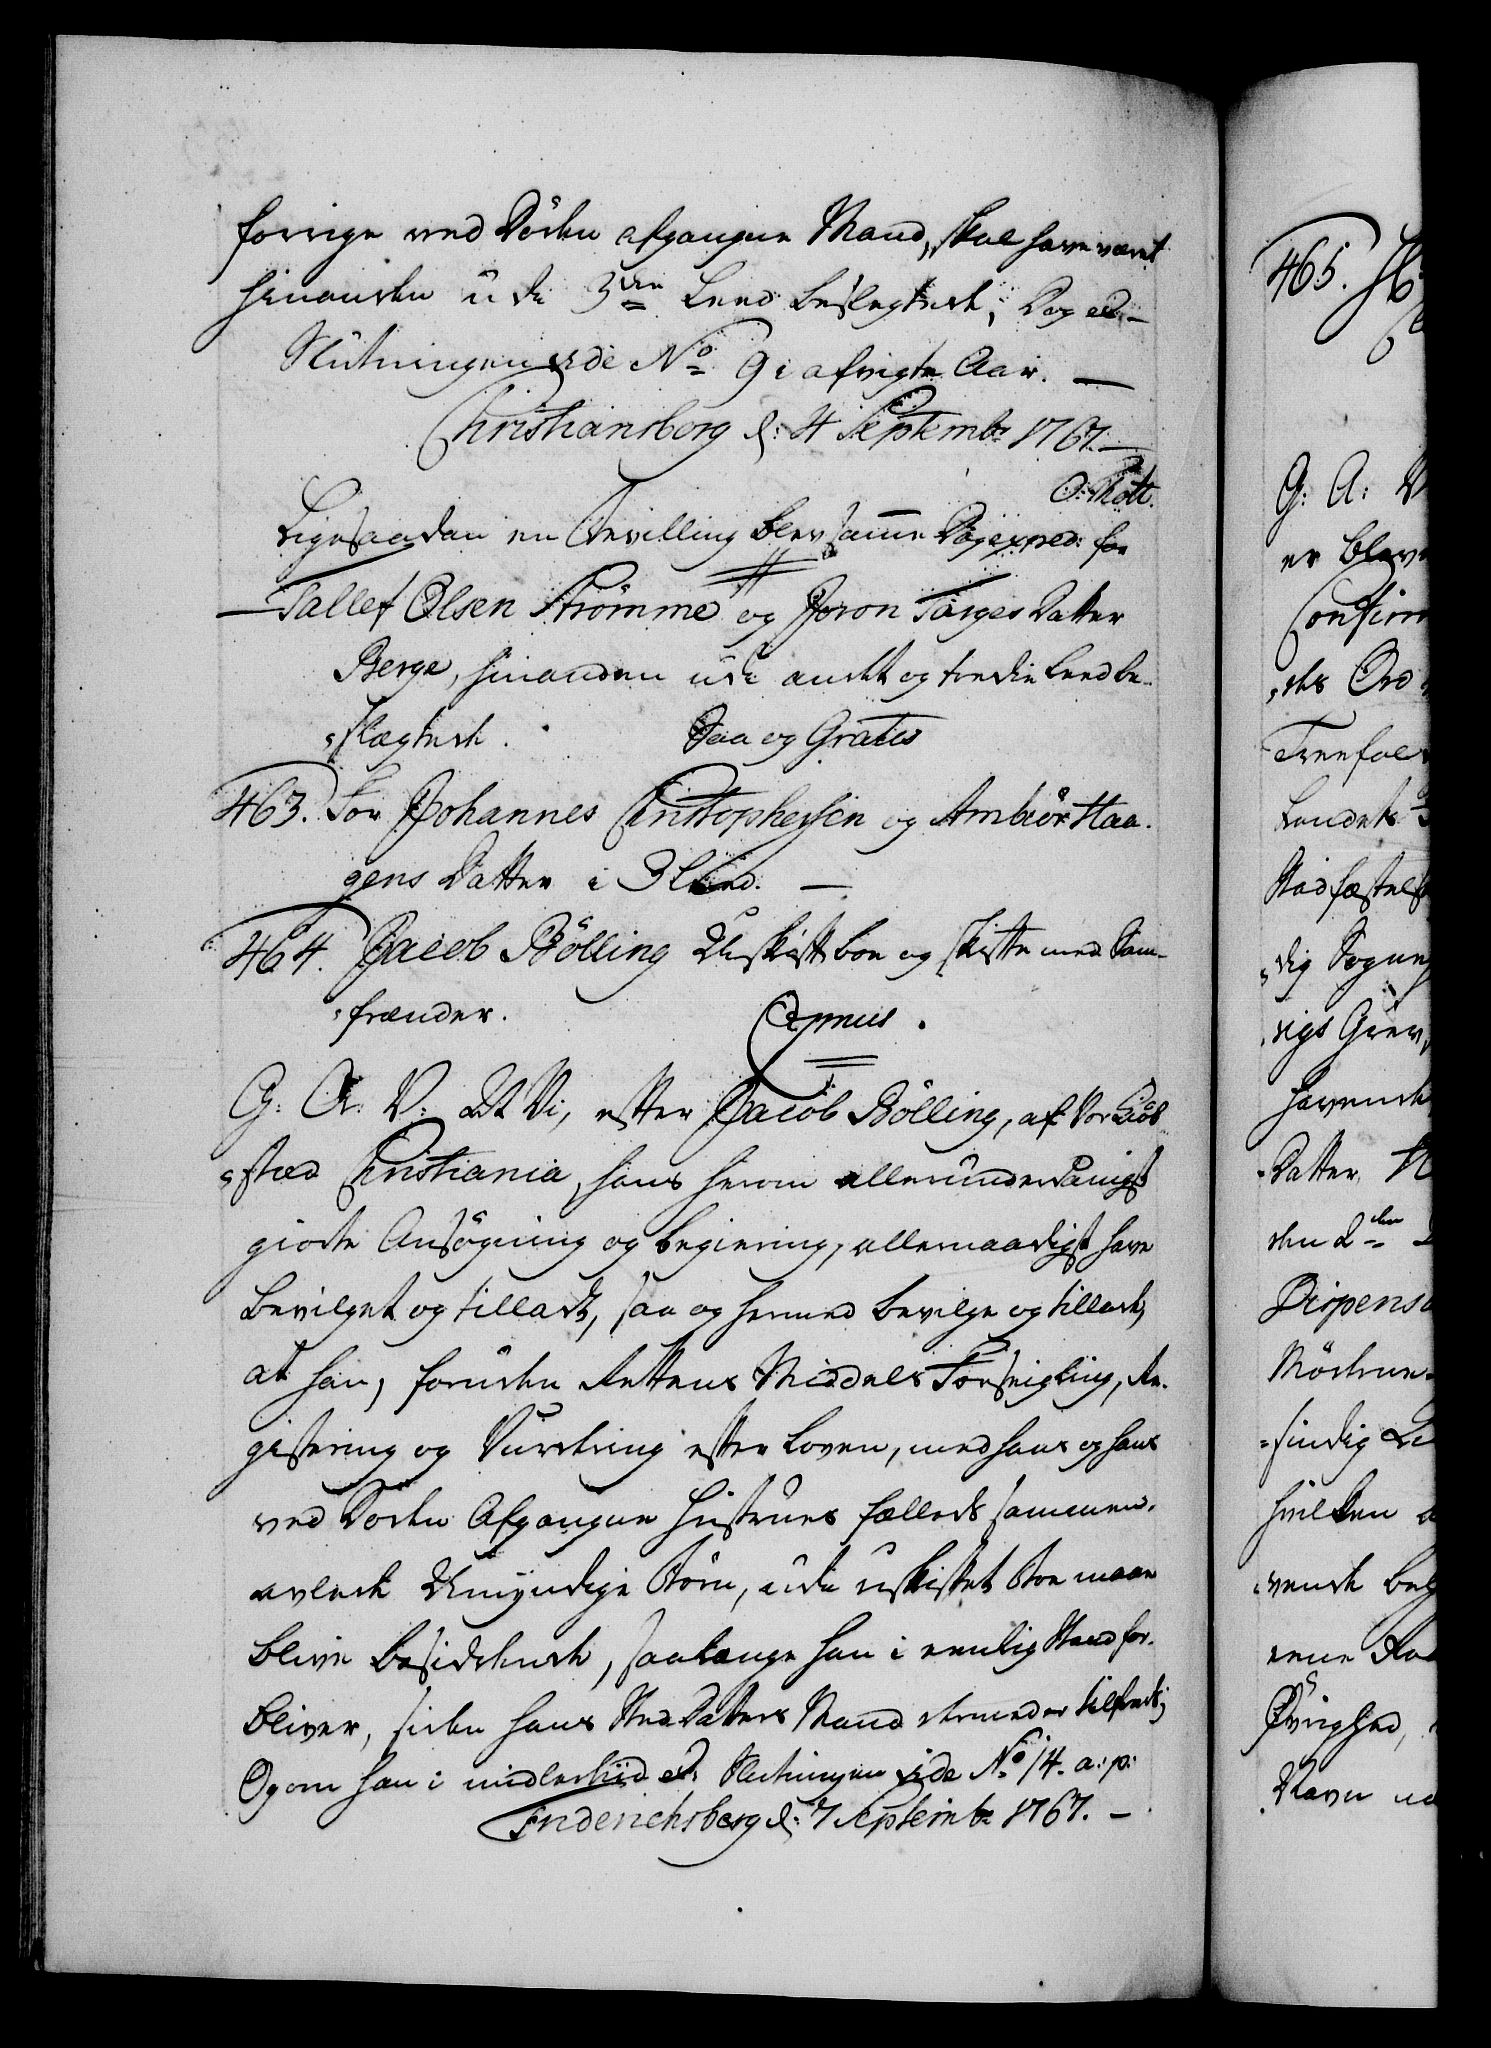 forrige ved Döden afgangne Mand, skal have været
hinanden udi 3die Leed beslegtede; Dog etc.
Slutningen vide No 9 i afvigte Aar. —
Christiansborg d: 4 Septembr 1767. —
O: Thott.
Ligesaadan en Bevilling blev samme Dag exped: for
— Tallef Olsen Strömme og Joron Targes Datter
Berge, hinanden udi andet og tredie Leed be-
slægtede. Saa og Gratis
463. For Johannes Christophersen og Ambiör Haa-
gens Datter i 3 Leed. —
464. Jacob Bölling Uskiftt boe og skifte med Sam-
frænder.
G: A: V: At Vi, efter Jacob Bölling, af Vor Kiöb-
stæd Christiania, hans herom allerunderdanigst
giorte Ansögning og begiering, allernaadigst have
bevilget og tilladt, saa og hermed bevilge og tillade,
at han, foruden Rettens Middels Forseigling, Re-
gistering og Vurdering efter Loven, med hans og hans
ved Döden Afgangne Hustrues fælleds sammen-
avlede Umyndige Börn, udi uskiftet Boe maae
blive besiddende, saalænge han i eenlig Stand for-
bliver, siden hans Sted Datters Mand dermed er tilfreds;
Og om han i midlertiid etc. Slutningen vide No 14. a: p:
Friderichsberg d: 7 Septembr 1767. —
465.
G: A: V
er bleve
Confirm
Ord
Treefol
Landets
Stadfæstelse
dig Sogne
rigs Grev
havende
Datter
den 2den
Dispensa
Mödrene
sindig
hvilken
vende
Övrighed,